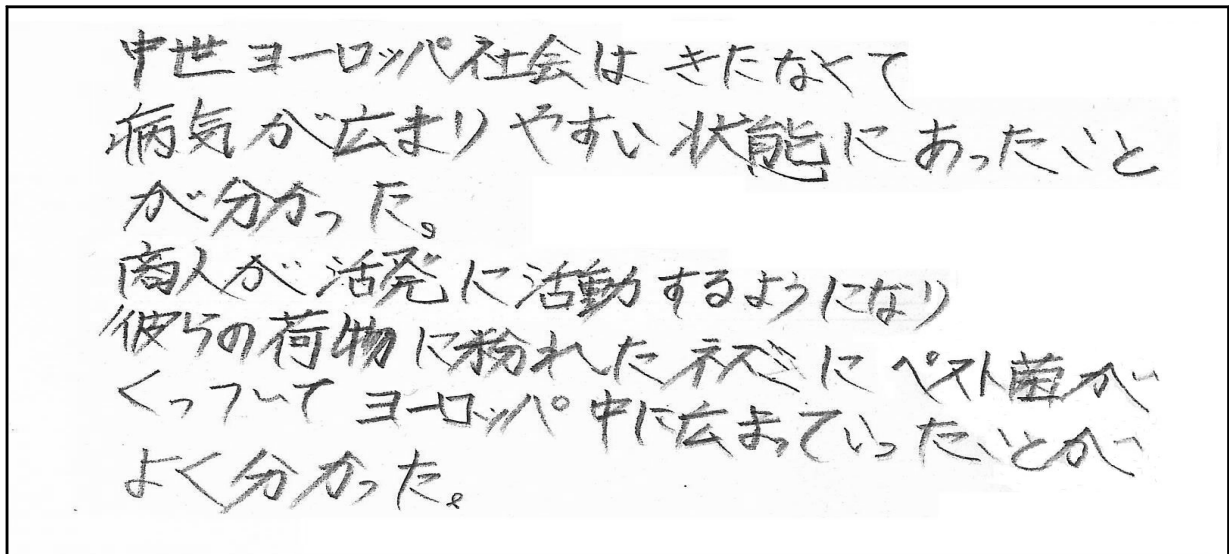 中世ヨーロッパ社会はきたなくて
病気が広まりやすい状態にあったこと
が分かった。
商人が活発に活動するようになり
彼らの荷物に粉れたネズミにペスト菌が
くっついてヨーロッパ中に広まっていったことが
よく分かった。